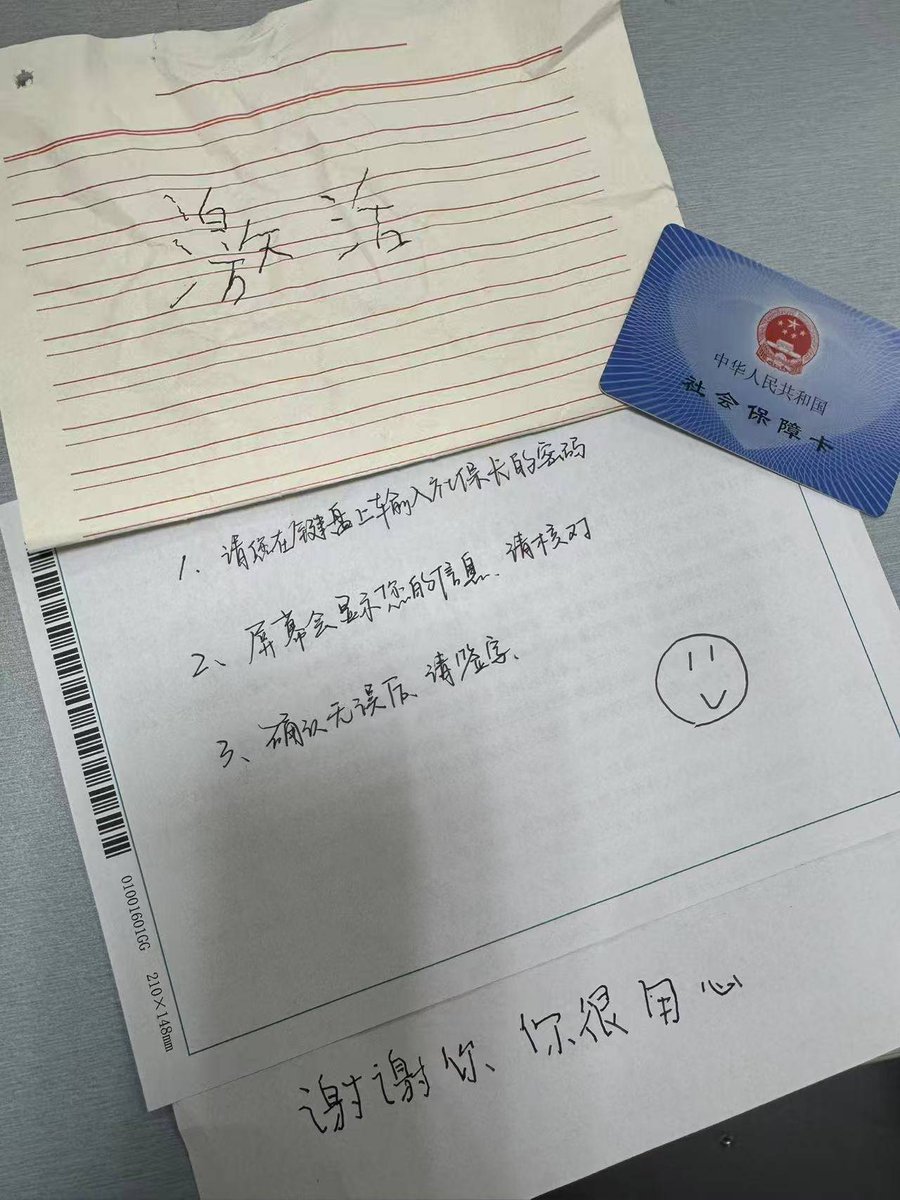 激活
中华人民共和国
社会保障卡
1、请您在键盘上输入社保卡的密码
2、屏幕会显示您的信息、请核对
3、确认无误后、请签字、
01001601GG 210×148mm
谢谢你、你很用心